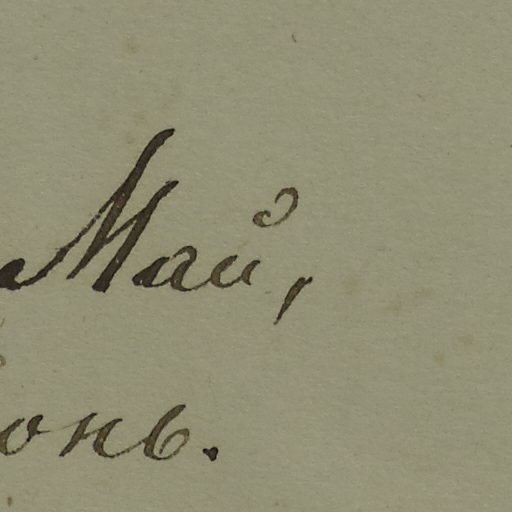 Май,
онь.